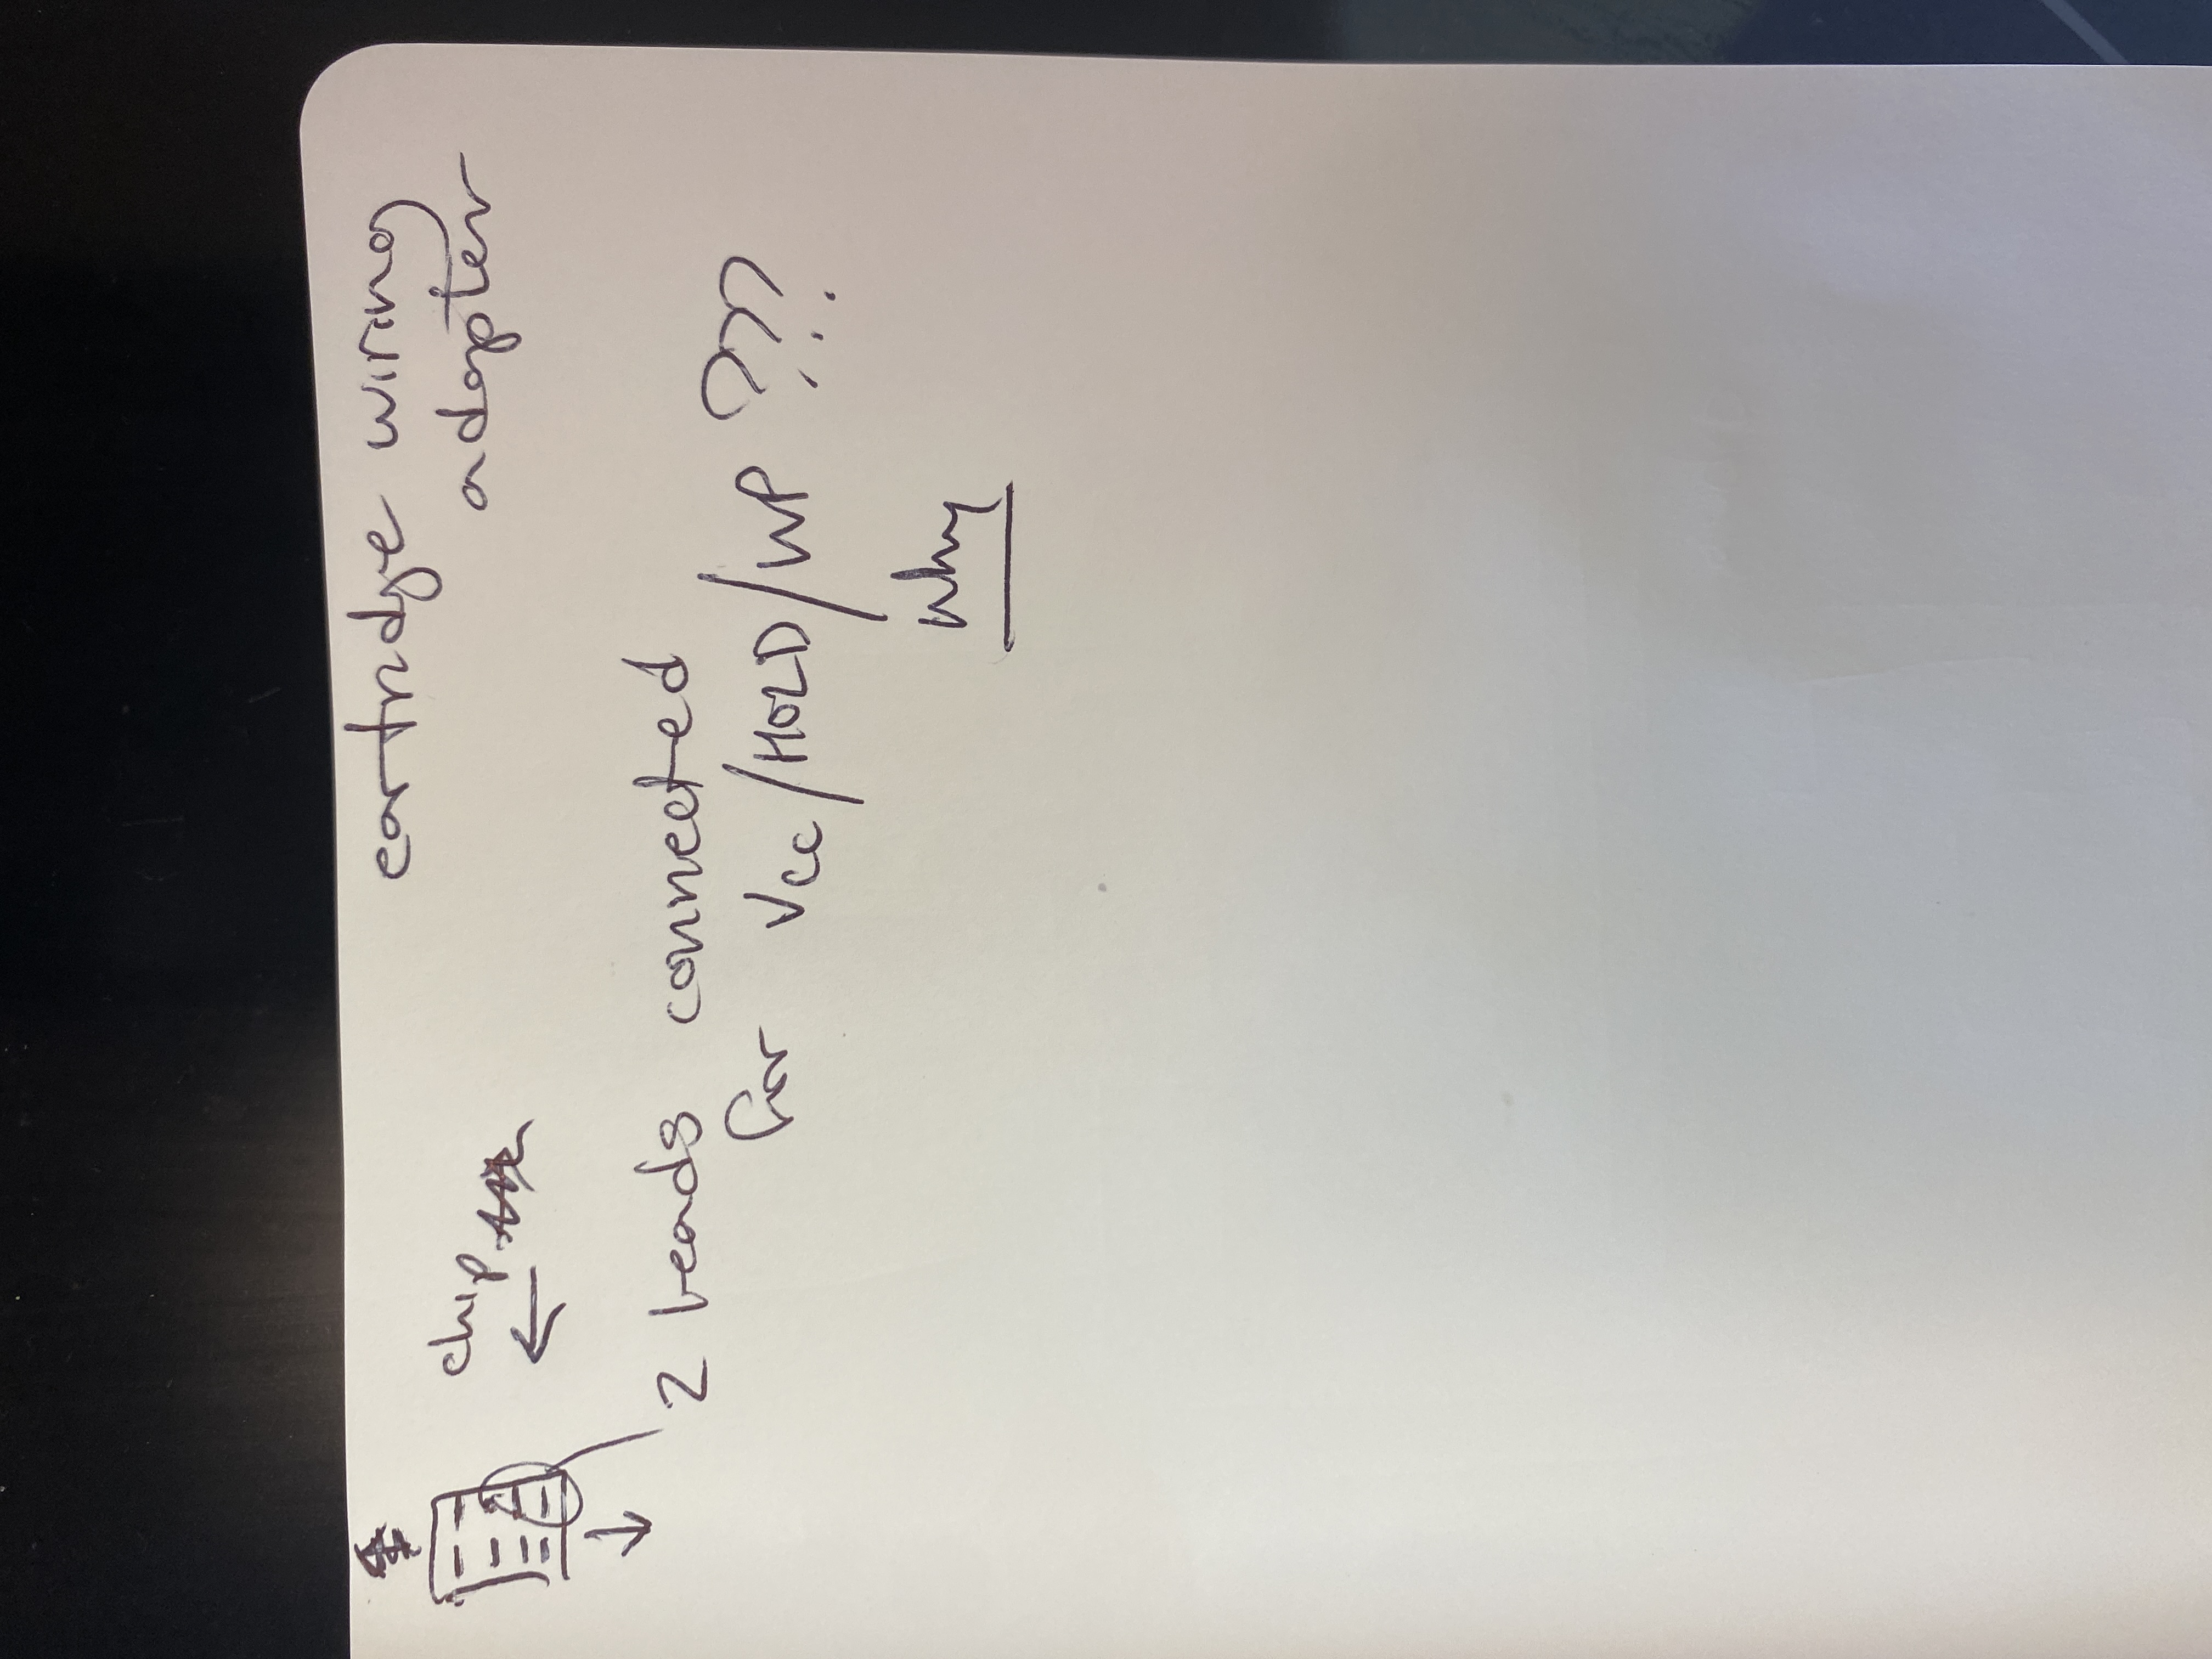 cartridge wiring
adapter
chip
2 beads connected
for Vcc/HOLD/WP ???
why